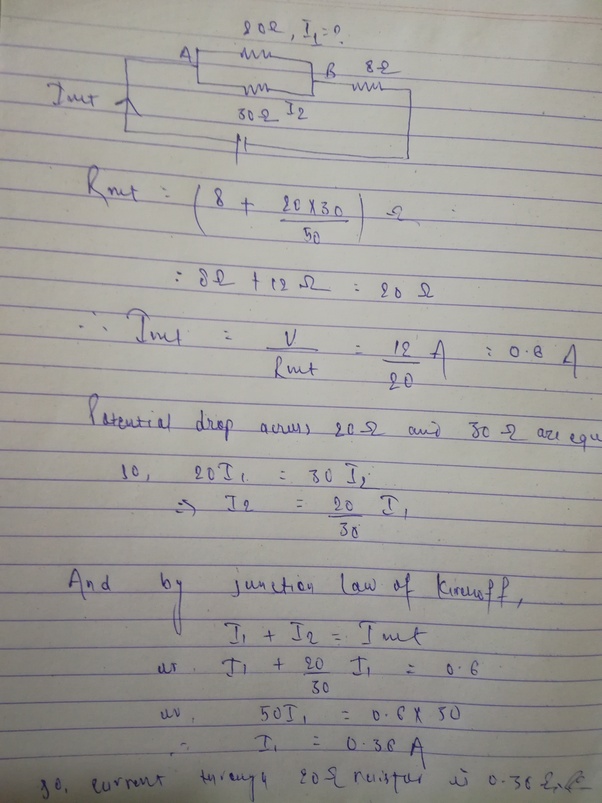 20Ω, I₁=?
A
B 8Ω
Inet
30Ω I2
Rnet = (8 + 20×30/50) Ω
= 8Ω + 12Ω = 20Ω
∴ Inet = V/Rnet = 12/20 A = 0.6 A
Potential drop across 20Ω and 30Ω are equ
so, 20I₁ = 30I₂
⇒ I2 = 20/30 I₁
And by junction law of Kirchoff,
I₁ + I₂ = Inet
or I₁ + 20/30 I₁ = 0.6
or, 50I₁ = 0.6×30
∴ I₁ = 0.36 A
so, current through 20Ω resistor is 0.36